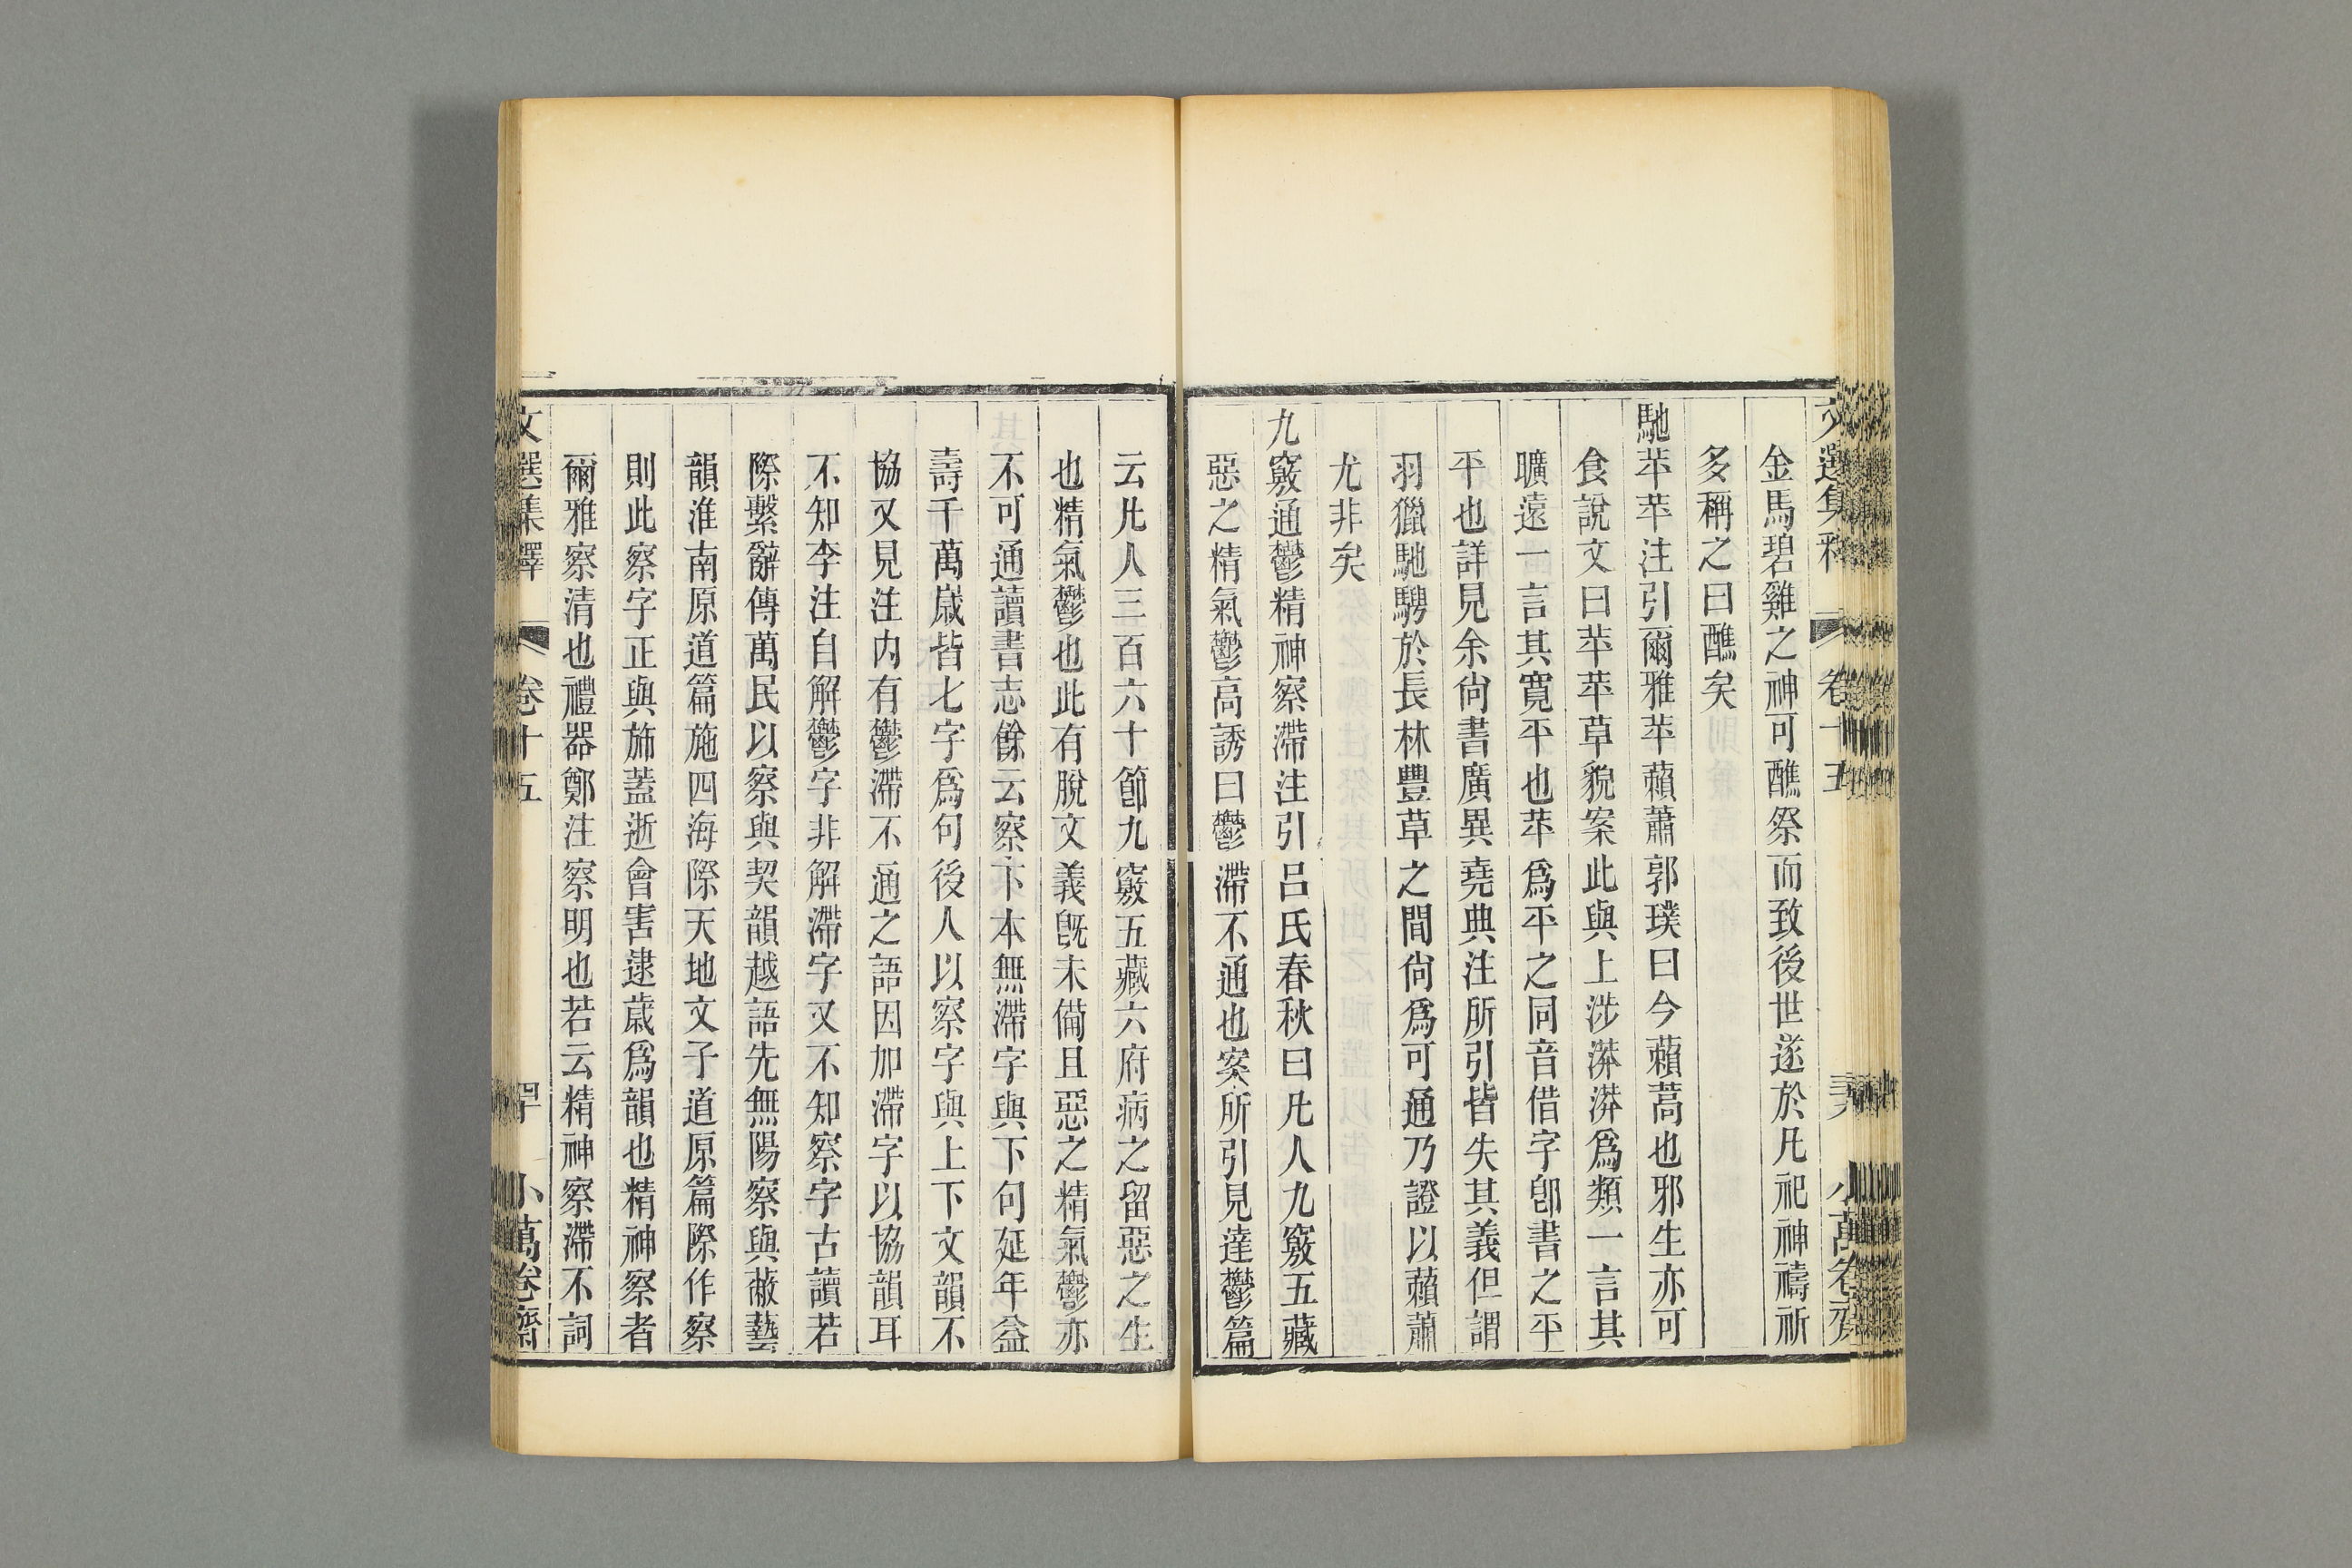 金馬碧雞之神可醮祭而致後世遂於凡祀神禱祈
多稱之曰醮矣
馳苹苹注引爾雅苹藾蕭郭璞曰今藾蒿也邪生亦可
食說文曰苹苹草貌案此與上涉漭漭爲類一言其
曠遠一言其寬平也苹爲平之同音借字卽書之平
平也詳見余尙書廣異堯典注所引皆失其義但謂
羽獵馳騁於長林豐草之間尙爲可通乃證以藾蕭
尤非矣
九竅通鬱精神察滯注引呂氏春秋曰凡人九竅五藏
惡之精氣鬱高誘曰鬱滯不通也案所引見達鬱篇
云凡人三百六十節九竅五藏六府病之留惡之生
也精氣鬱也此有脫文義旣未備且惡之精氣鬱亦
不可通讀書志餘云察下本無滯字與下句延年益
壽千萬歲皆七字爲句後人以察字與上下文韻不
協又見注內有鬱滯不通之語因加滯字以協韻耳
不知李注自解鬱字非解滯字又不知察字古讀若
際繫辭傳萬民以察與契韻越語先無陽察與蔽藝
韻淮南原道篇施四海際天地文子道原篇際作察
則此察字正與斾蓋逝會害逮歲爲韻也精神察者
爾雅察清也禮器鄭注察明也若云精神察滯不詞
文選集釋 卷十五 小萬卷齋